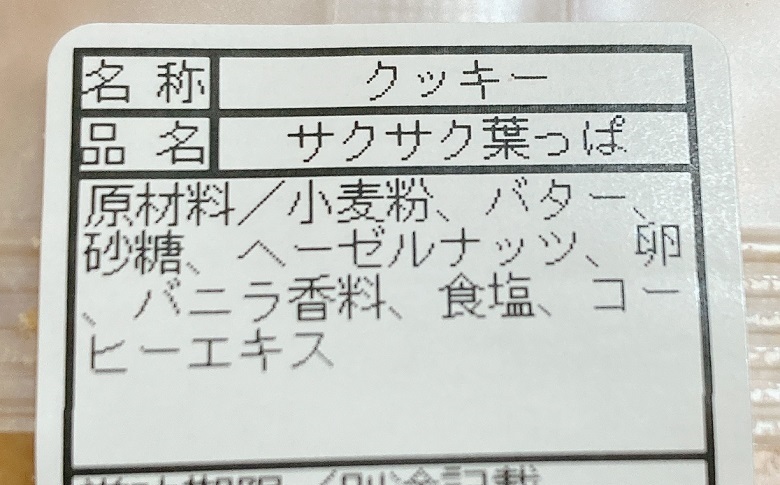 名称 クッキー
品名 サクサク葉っぱ
原材料／小麦粉、バター、
砂糖、ヘーゼルナッツ、卵
、バニラ香料、食塩、コー
ヒーエキス